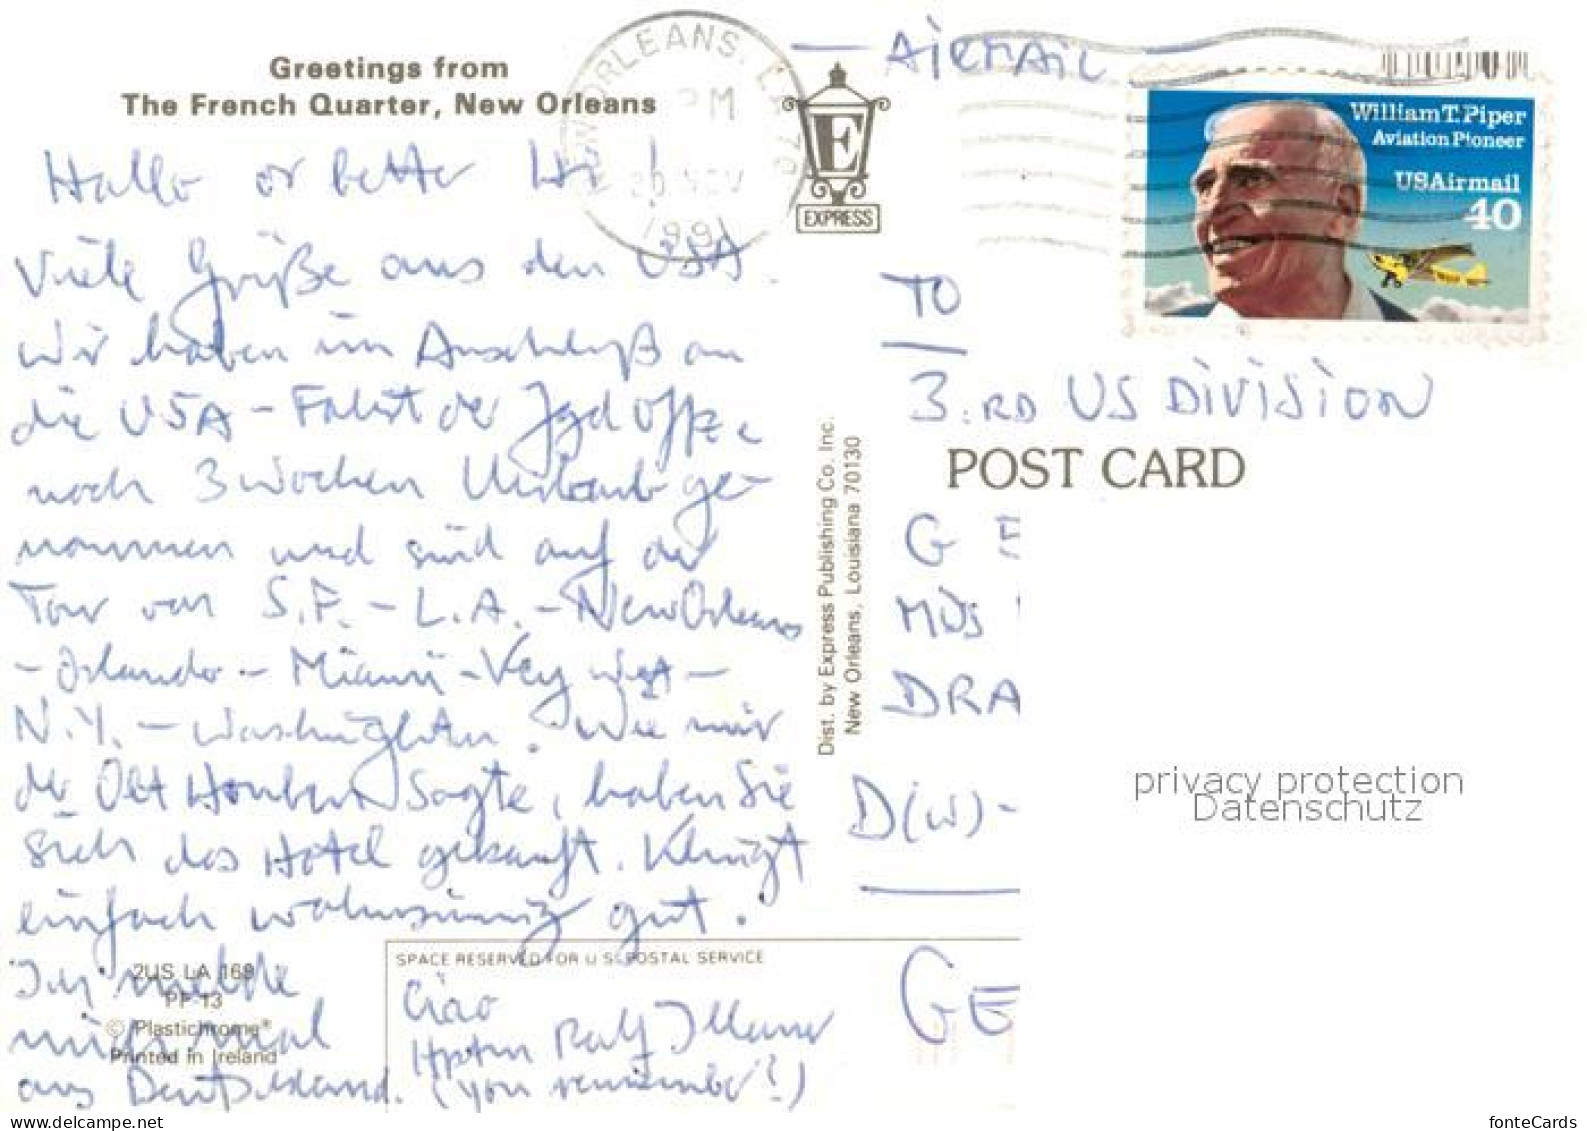 Greetings from
The French Quarter, New Orleans
Hallo or better Hi!
Viele Grüße aus den USA.
Wir haben im Anschluß an
die USA-Fahrt der
noch 3 Wochen Urlaub ge-
nommen und sind auf der
Tour von S.F.-L.A.-New Orleans
-Orlando-Miami-Key West-
N.Y.-Washington. Wie mir
der sagte, haben Sie
sich das Hotel gekauft. Klingt
einfach wahnsinnig gut.
Ich melde
mich mal
aus Deutschland.
2US LA 169
PF-13
© Plastichrome®
Printed in Ireland
SPACE RESERVED FOR U.S. POSTAL SERVICE
Ciao
Hptm Ralf
(you remember?)
Dist. by Express Publishing Co. Inc.
New Orleans, Louisiana 70130
E
EXPRESS
NEW ORLEANS, LA 70
PM
20 NOV
1991
AIRMAIL
William T. Piper
Aviation Pioneer
USAirmail
40
TO
3.RD US DIVISION
POST CARD
G E
MUS
DRA
D(W)-
GE
privacy protection
Datenschutz
www.delcampe.net
fonteCards